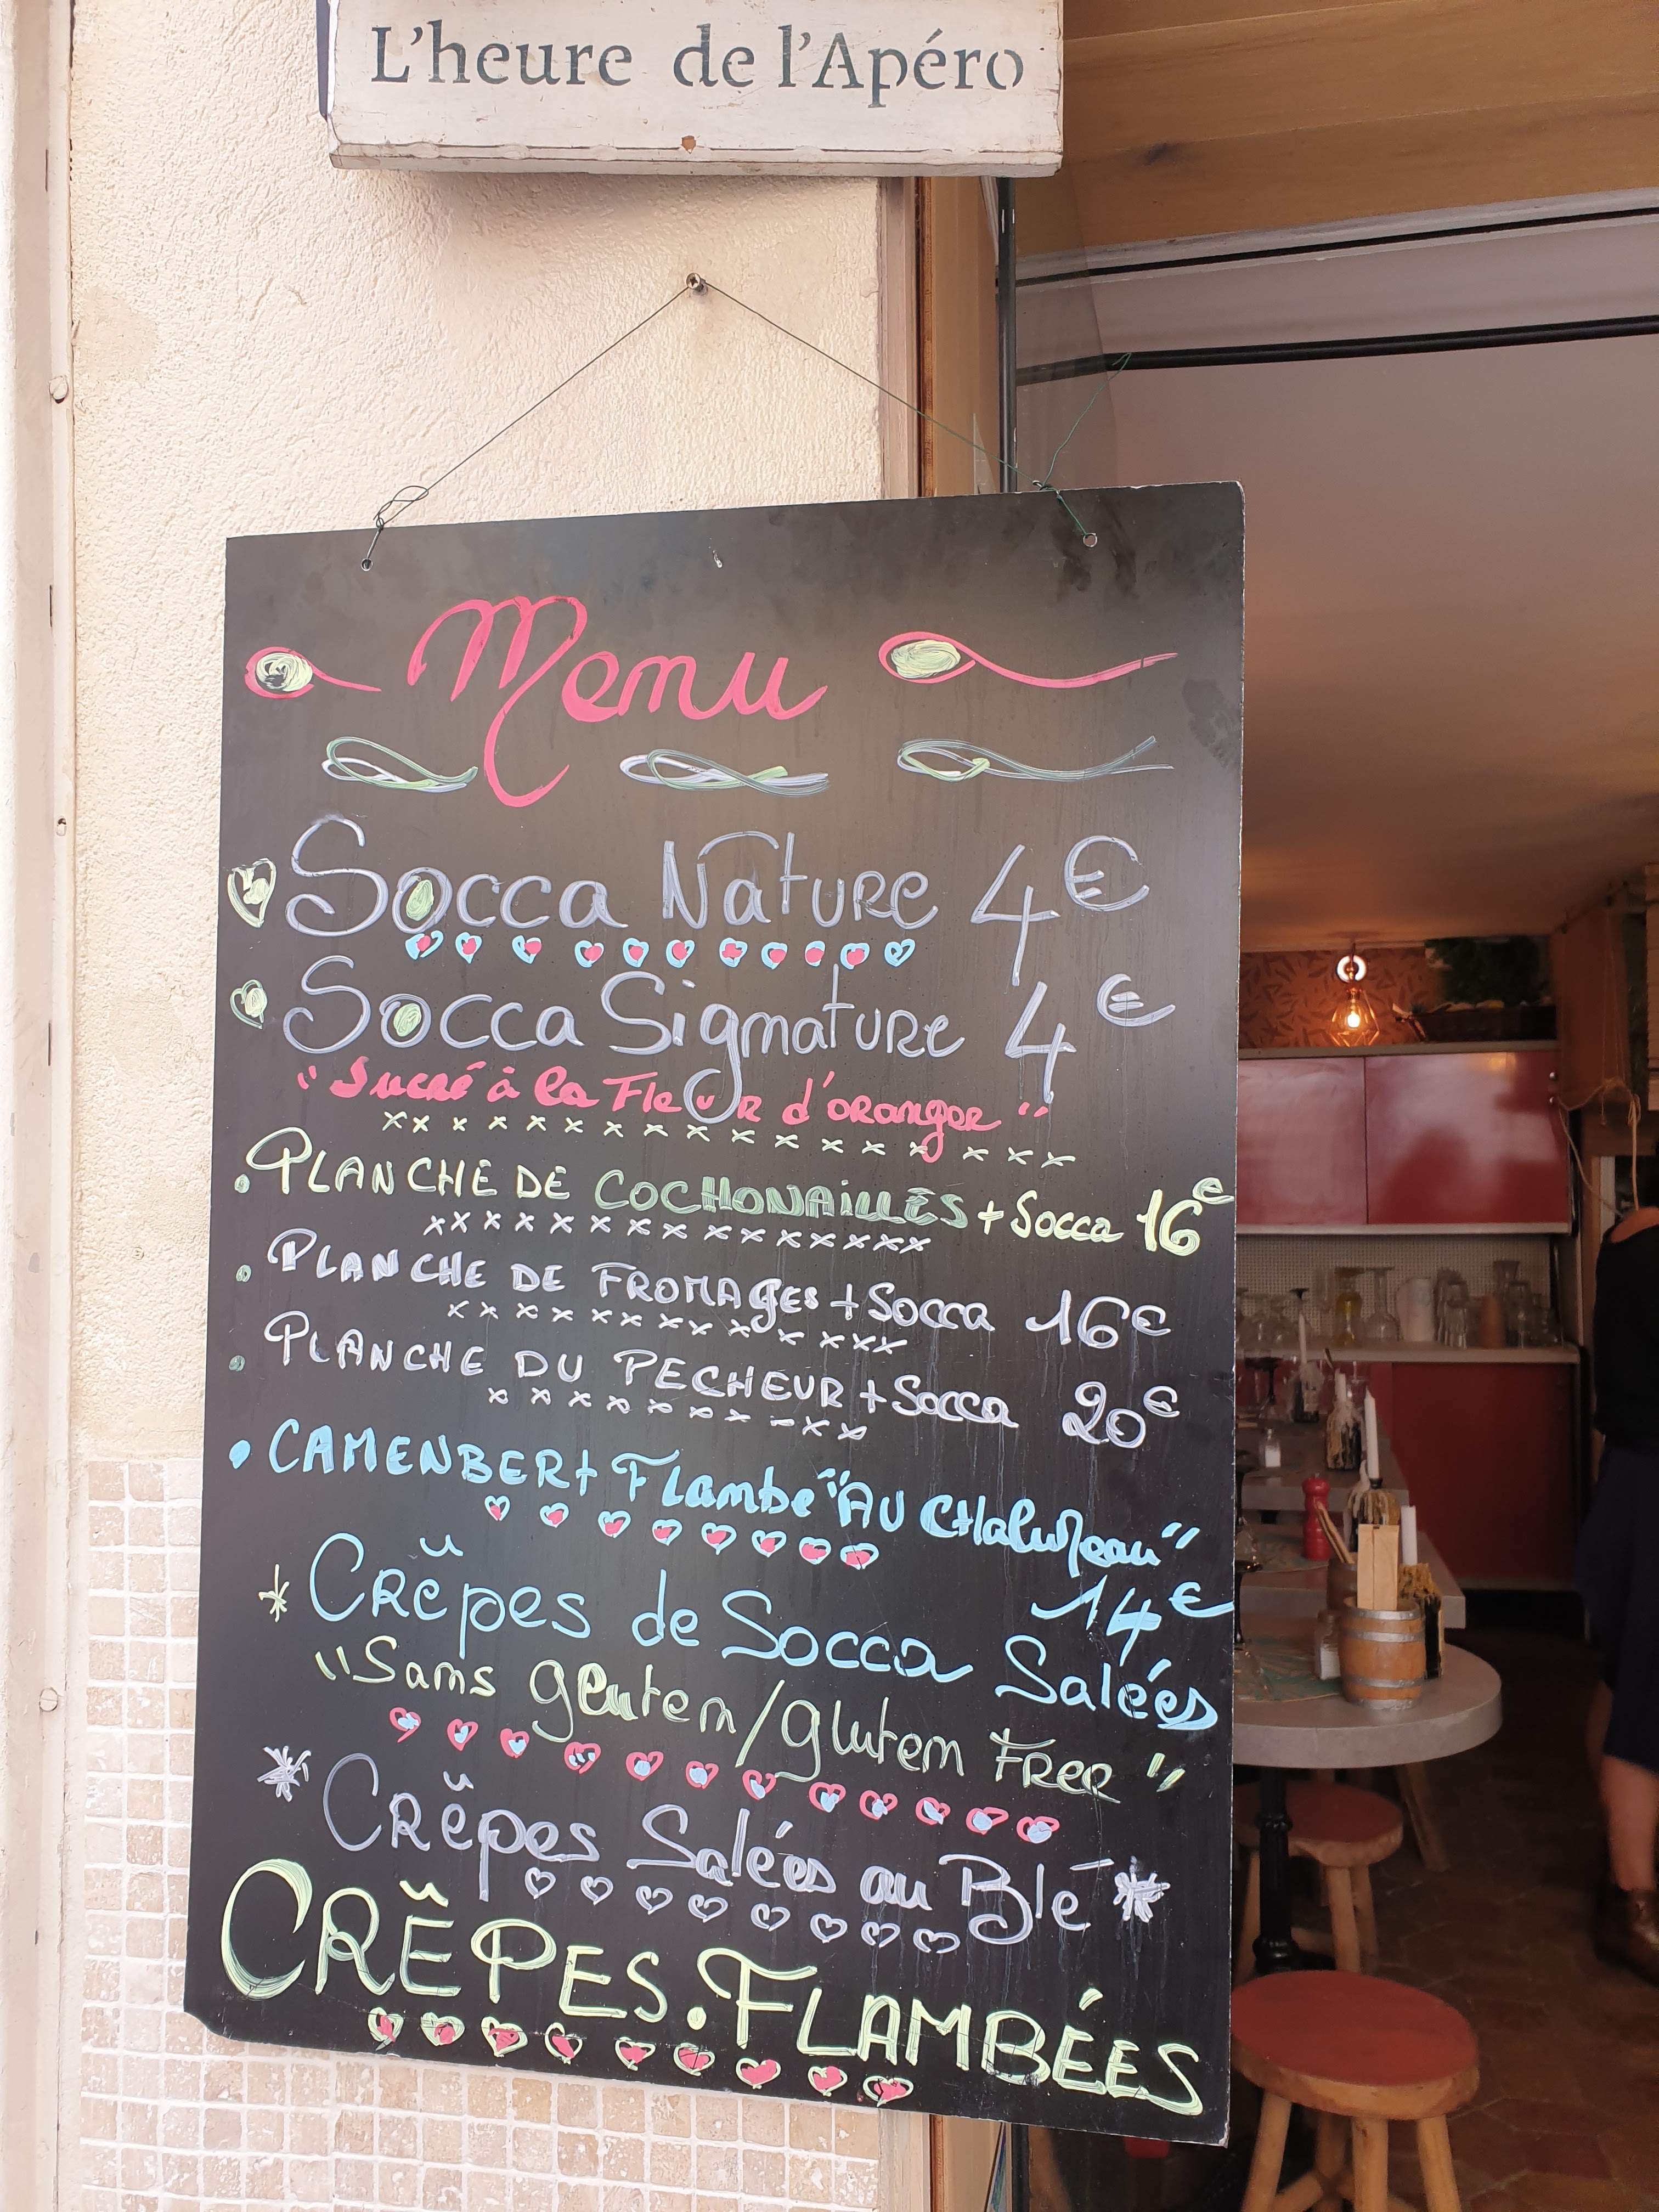 L'heure de l'Apéro
Menu
Socca Nature 4€
Socca Signature 4€
"Sucré à la Fleur d'oranger"
PLANCHE DE COCHONAILLES + Socca 16€
PLANCHE DE FROMAGES + Socca 16€
PLANCHE DU PECHEUR + Socca 20€
CAMENBERT Flambe "AU CHalumeau"
14€
Crêpes de Socca Salées
"Sans gluten/gluten FRee"
Crêpes Salées au Blé
CRÊPES. FLAMBÉES